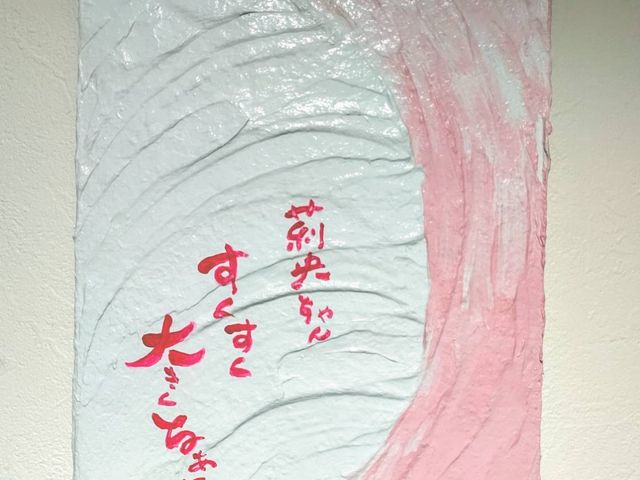 莉央ちゃん
すくすく
大きくなあ